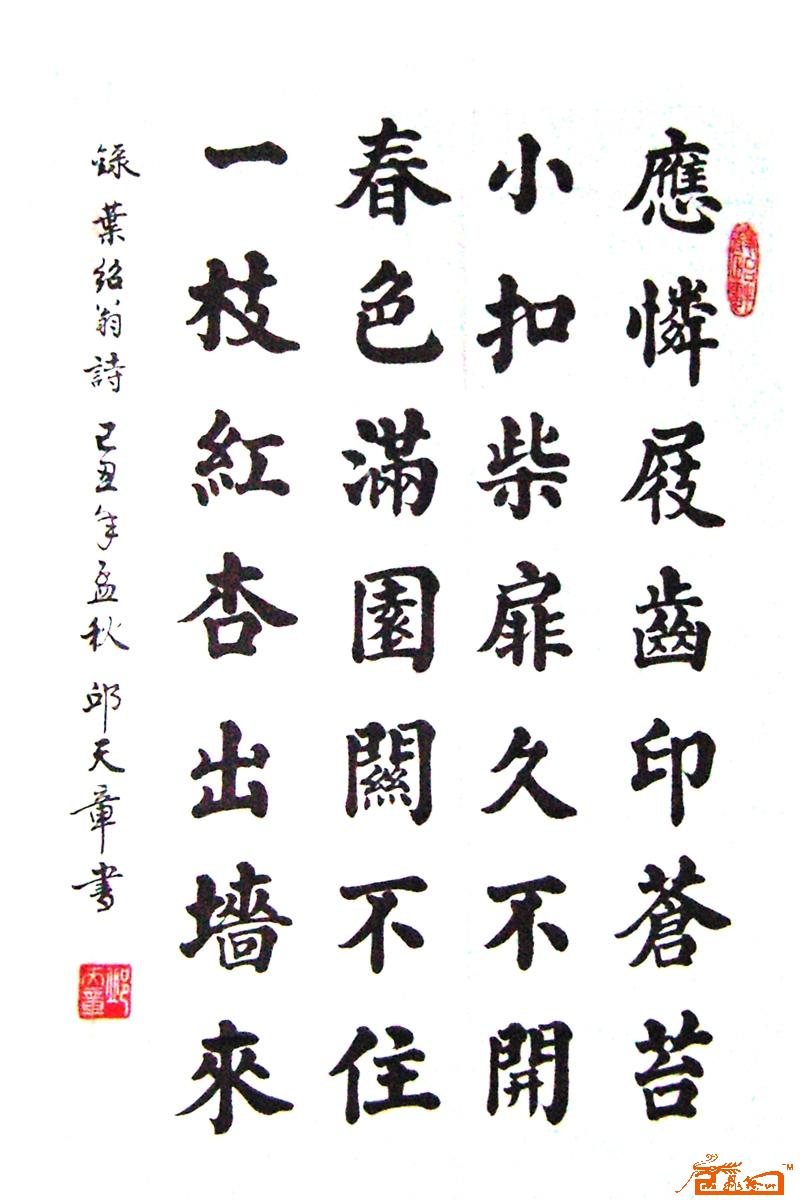 應憐屐齒印蒼苔
小扣柴扉久不開
春色滿園關不住
一枝紅杏出墻來
錄葉紹翁詩己丑年孟秋邱天章書
邱天章